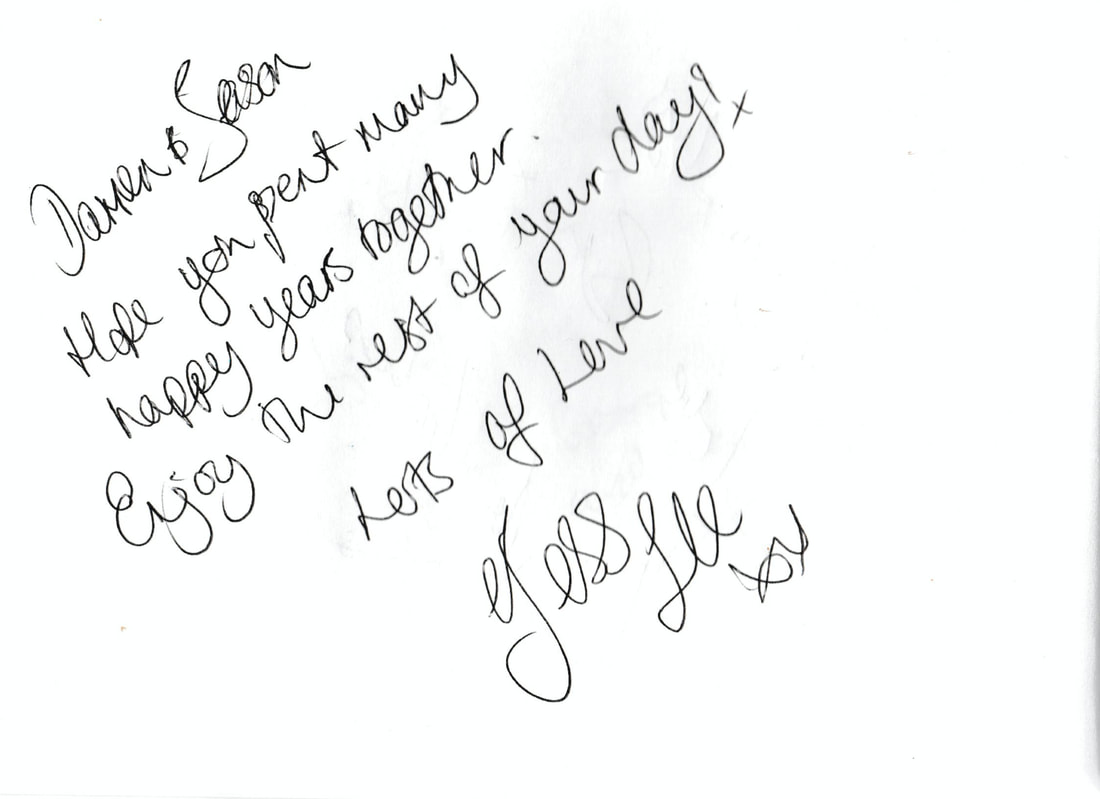 Darren & Jason
Hope you pent many
happy years together.
Enjoy the rest of your day! x
Lots of Love
Jess xox